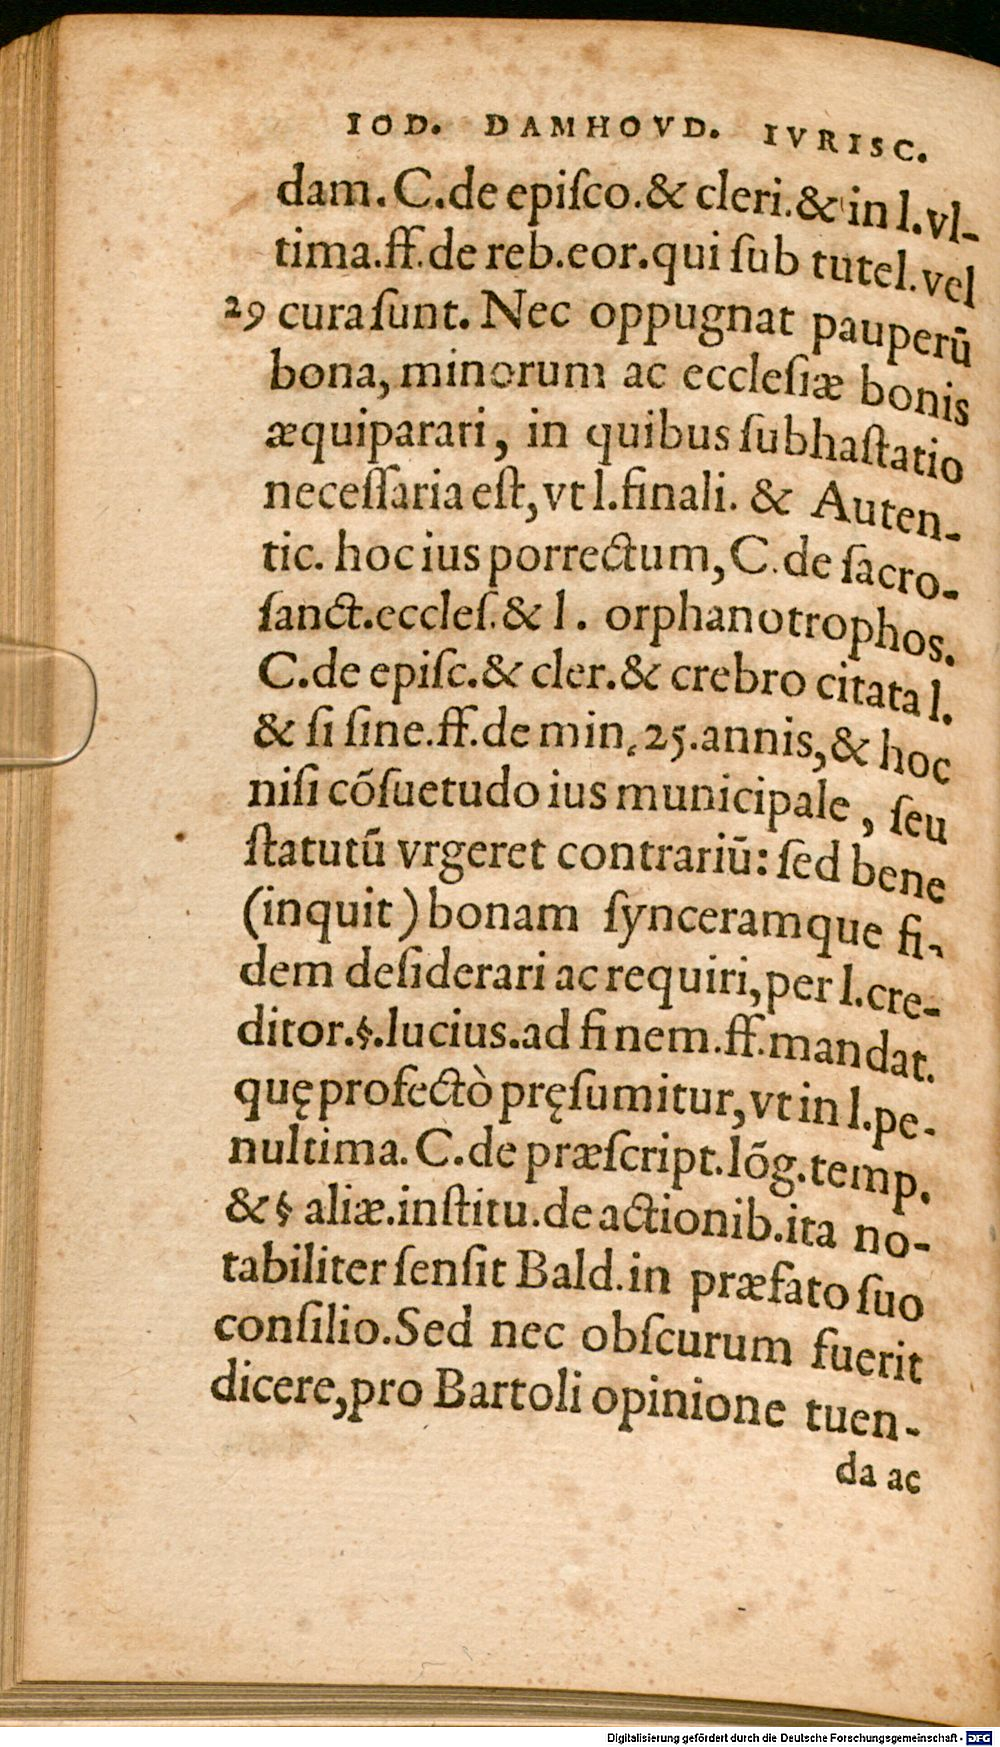 IOD. DAMHOVD. IVRISC.
dam. C.de epiſco.& cleri.& in l.vl-
tima.ff.de reb.eor.qui ſub tutel.vel
29 cura ſunt. Nec oppugnat pauperū
bona, minorum ac eccleſiæ bonis
æquiparari, in quibus ſubhaſtatio
neceſſaria eſt, vt l.finali. & Auten-
tic. hoc ius porrectum, C.de ſacro-
ſanct.eccleſ.& l. orphanotrophos.
C.de epiſc.& cler.& crebro citata l.
& ſi ſine.ff.de min. 25.annis, & hoc
niſi cõſuetudo ius municipale, ſeu
ſtatutũ vrgeret contrariũ: ſed bene
(inquit) bonam ſynceramque fi-
dem deſiderari ac requiri, per l.cre-
ditor.§.lucius.ad finem.ff.mandat.
quę profectò pręſumitur, vt in l.pe-
nultima. C.de præſcript.lõg.temp.
& § aliæ.inſtitu.de actionib.ita no-
tabiliter ſenſit Bald.in præfato ſuo
conſilio. Sed nec obſcurum fuerit
dicere, pro Bartoli opinione tuen-
da ac
Digitalisierung gefördert durch die Deutsche Forschungsgemeinschaft - DFG